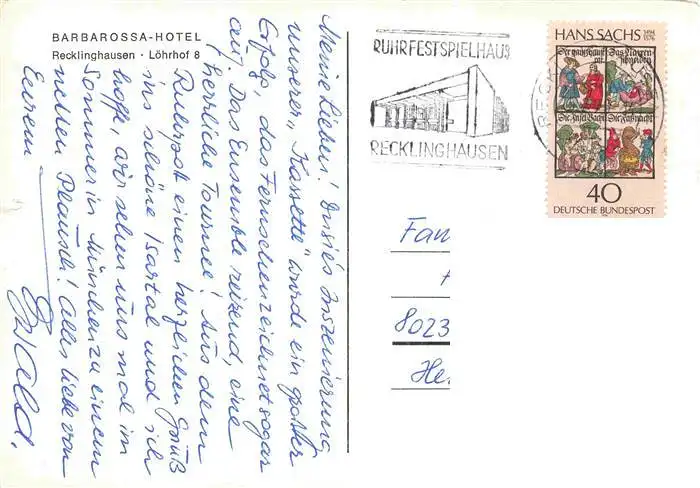 BARBAROSSA-HOTEL
Recklinghausen · Löhrhof 8
Meine Lieben! Inzie's Inszenierung
unserer „Kassette" wurde ein großer
Erfolg, das Fernsehen zeichnet sogar
auf. Das Ensemble reizend, eine
herrliche Tournee! Aus dem
Ruhrpott einen herzlichen Gruß
ins schöne Isartal und ich
hoffe, wir sehen uns mal im
Sommer in München zu einem
netten Plausch! Alles liebe von
Eurem
RUHRFESTSPIELHAUS
RECKLINGHAUSEN
HANS SACHS 1494 1576
Das Narren
Die Faßnacht
40
DEUTSCHE BUNDESPOST
Fam
8023